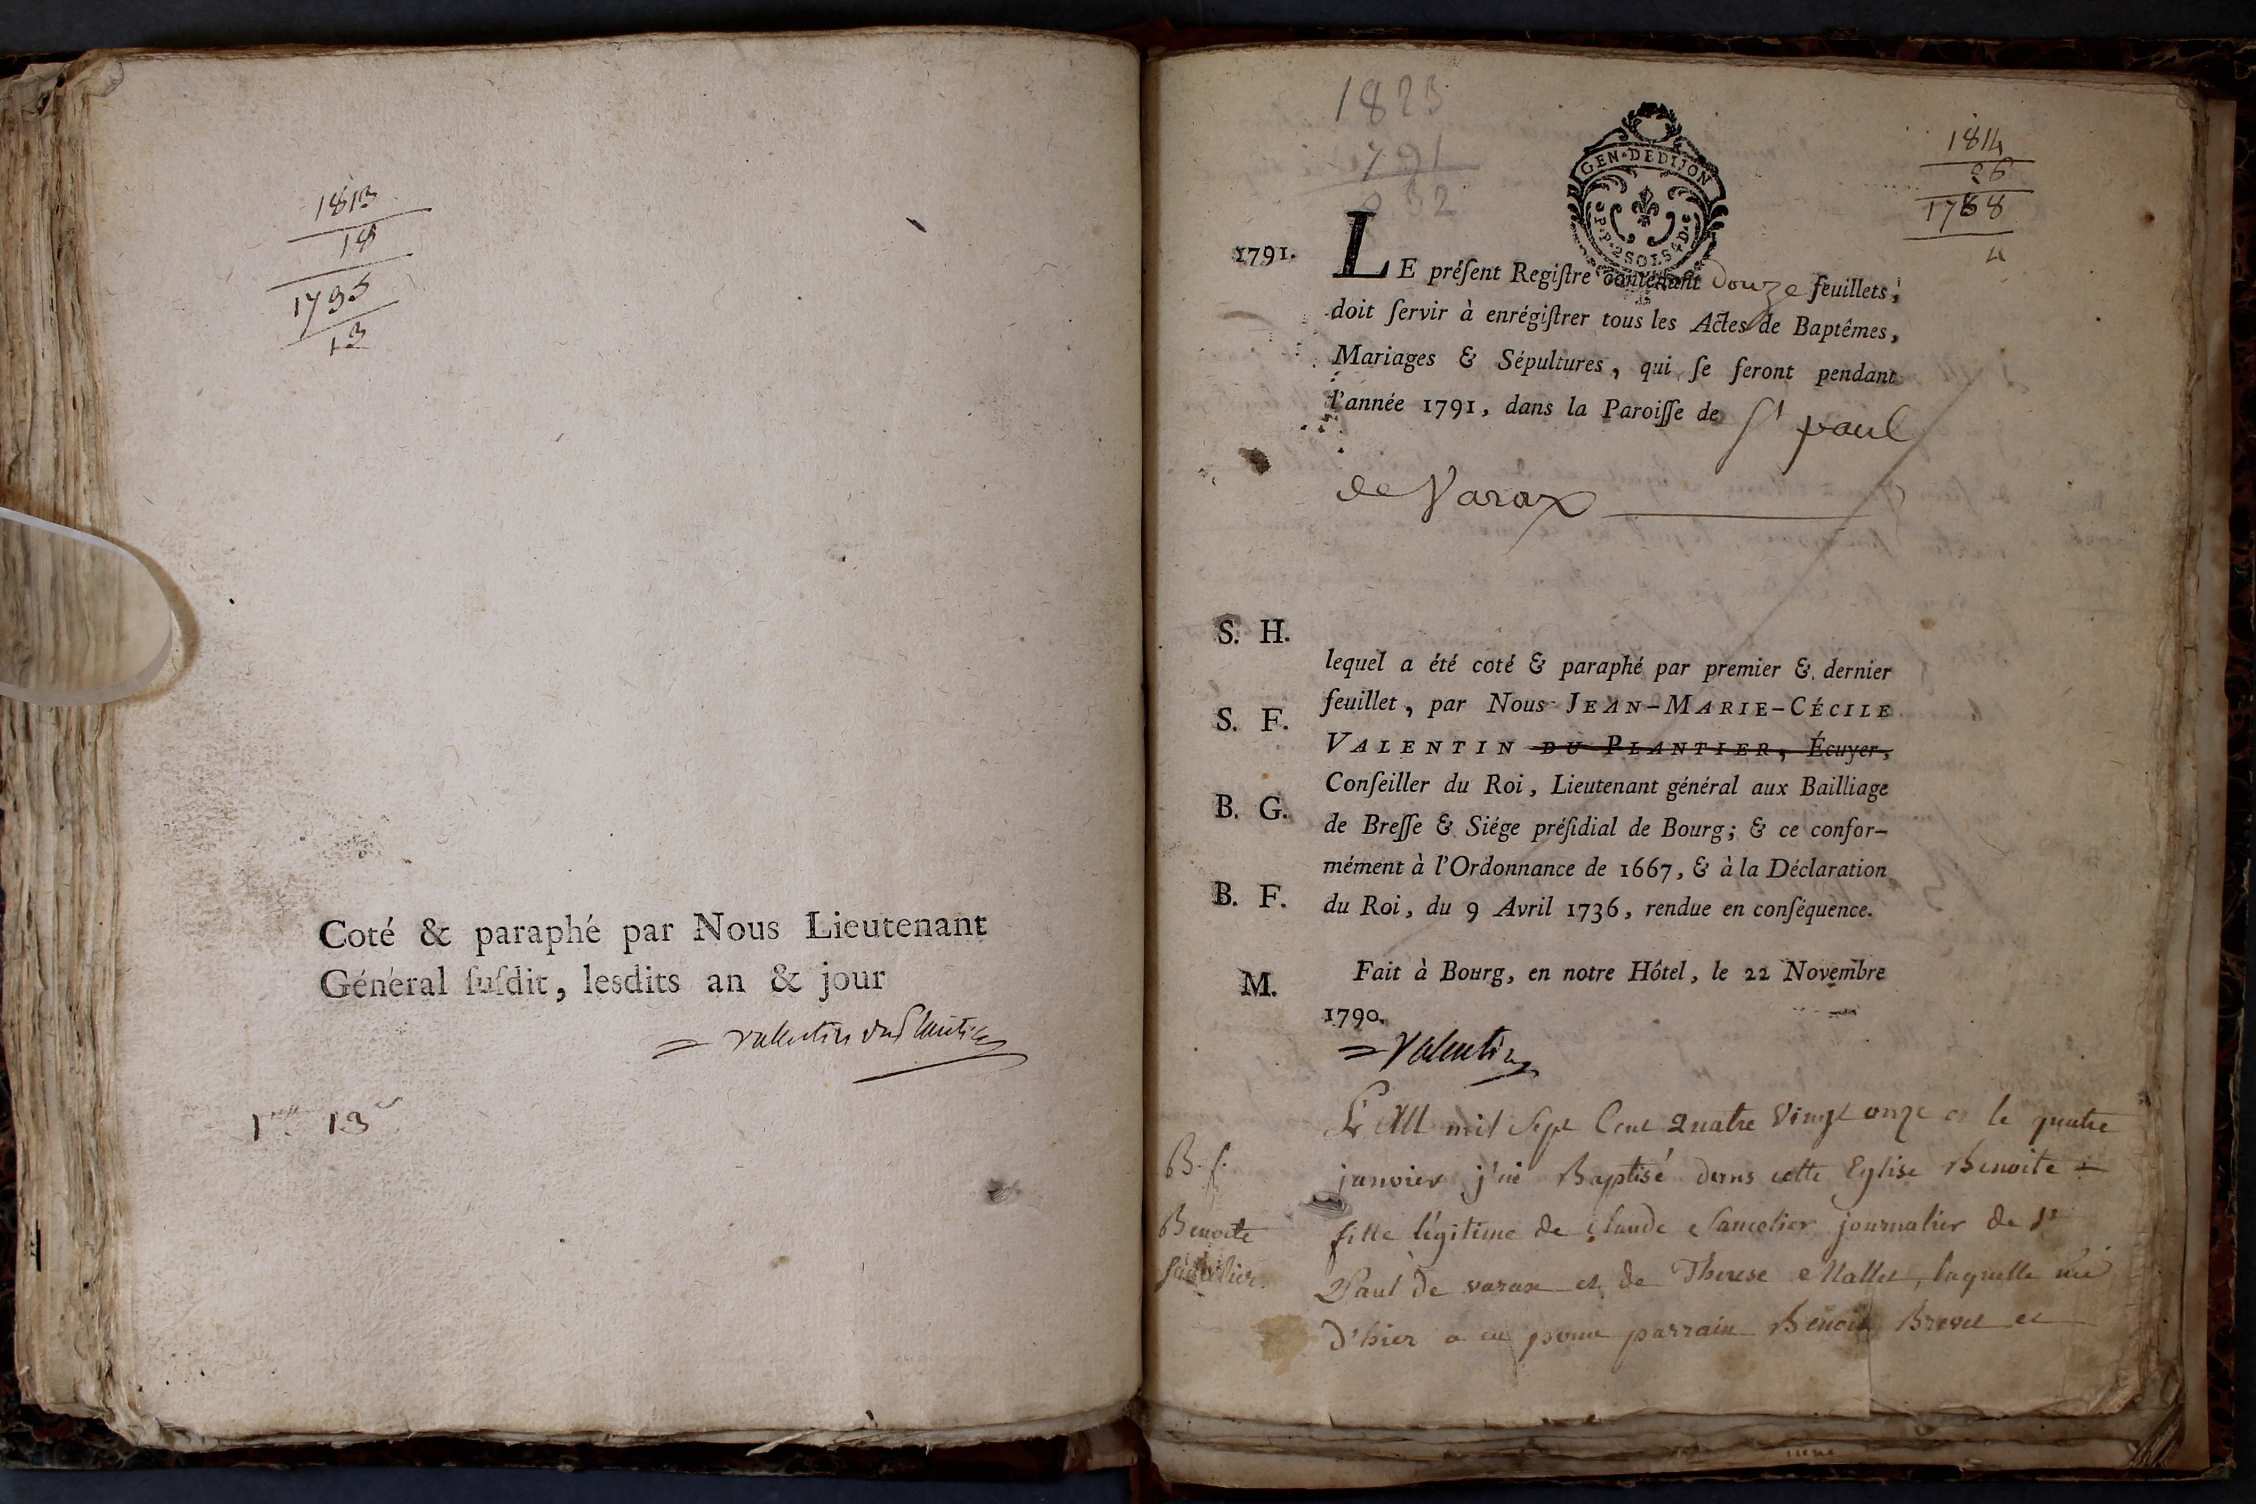 1813
18
1795
13
Coté & paraphé par Nous Lieutenant
Général ſuſdit, lesdits an & jour
= Valentin duplantier
13
1823
791
GEN·DEDIJON
P.P. 2SOLS4D.
1814
26
1788
1791.
LE préſent Regiſtre contenant douze feuillets,
doit ſervir à enrégiſtrer tous les Actes de Baptêmes,
Mariages & Sépultures, qui ſe feront pendant
l'année 1791, dans la Paroiſſe de St paul
de Varax
S. H.
lequel a été coté & paraphé par premier & dernier
feuillet, par Nous JEAN-MARIE-CÉCILE
S. F.
VALENTIN DU PLANTIER, Écuyer,
Conſeiller du Roi, Lieutenant général aux Bailliage
B. G.
de Breſſe & Siége préſidial de Bourg; & ce confor-
mément à l'Ordonnance de 1667, & à la Déclaration
B. F.
du Roi, du 9 Avril 1736, rendue en conſéquence.
M.
Fait à Bourg, en notre Hôtel, le 22 Novembre
1790.
= Valentin
L'an mil Sept Cent Quatre Vingt onze et le quatre
B. f.
janvier j'ai Baptisé dans cette Eglise Benoite
Benoite
fille légitime de Claude Sancelier journalier de St
Sancelier
Paul de varax et de Therese Mallet, laquelle née
d'hier a eu pour parrain Benoit Brevet et